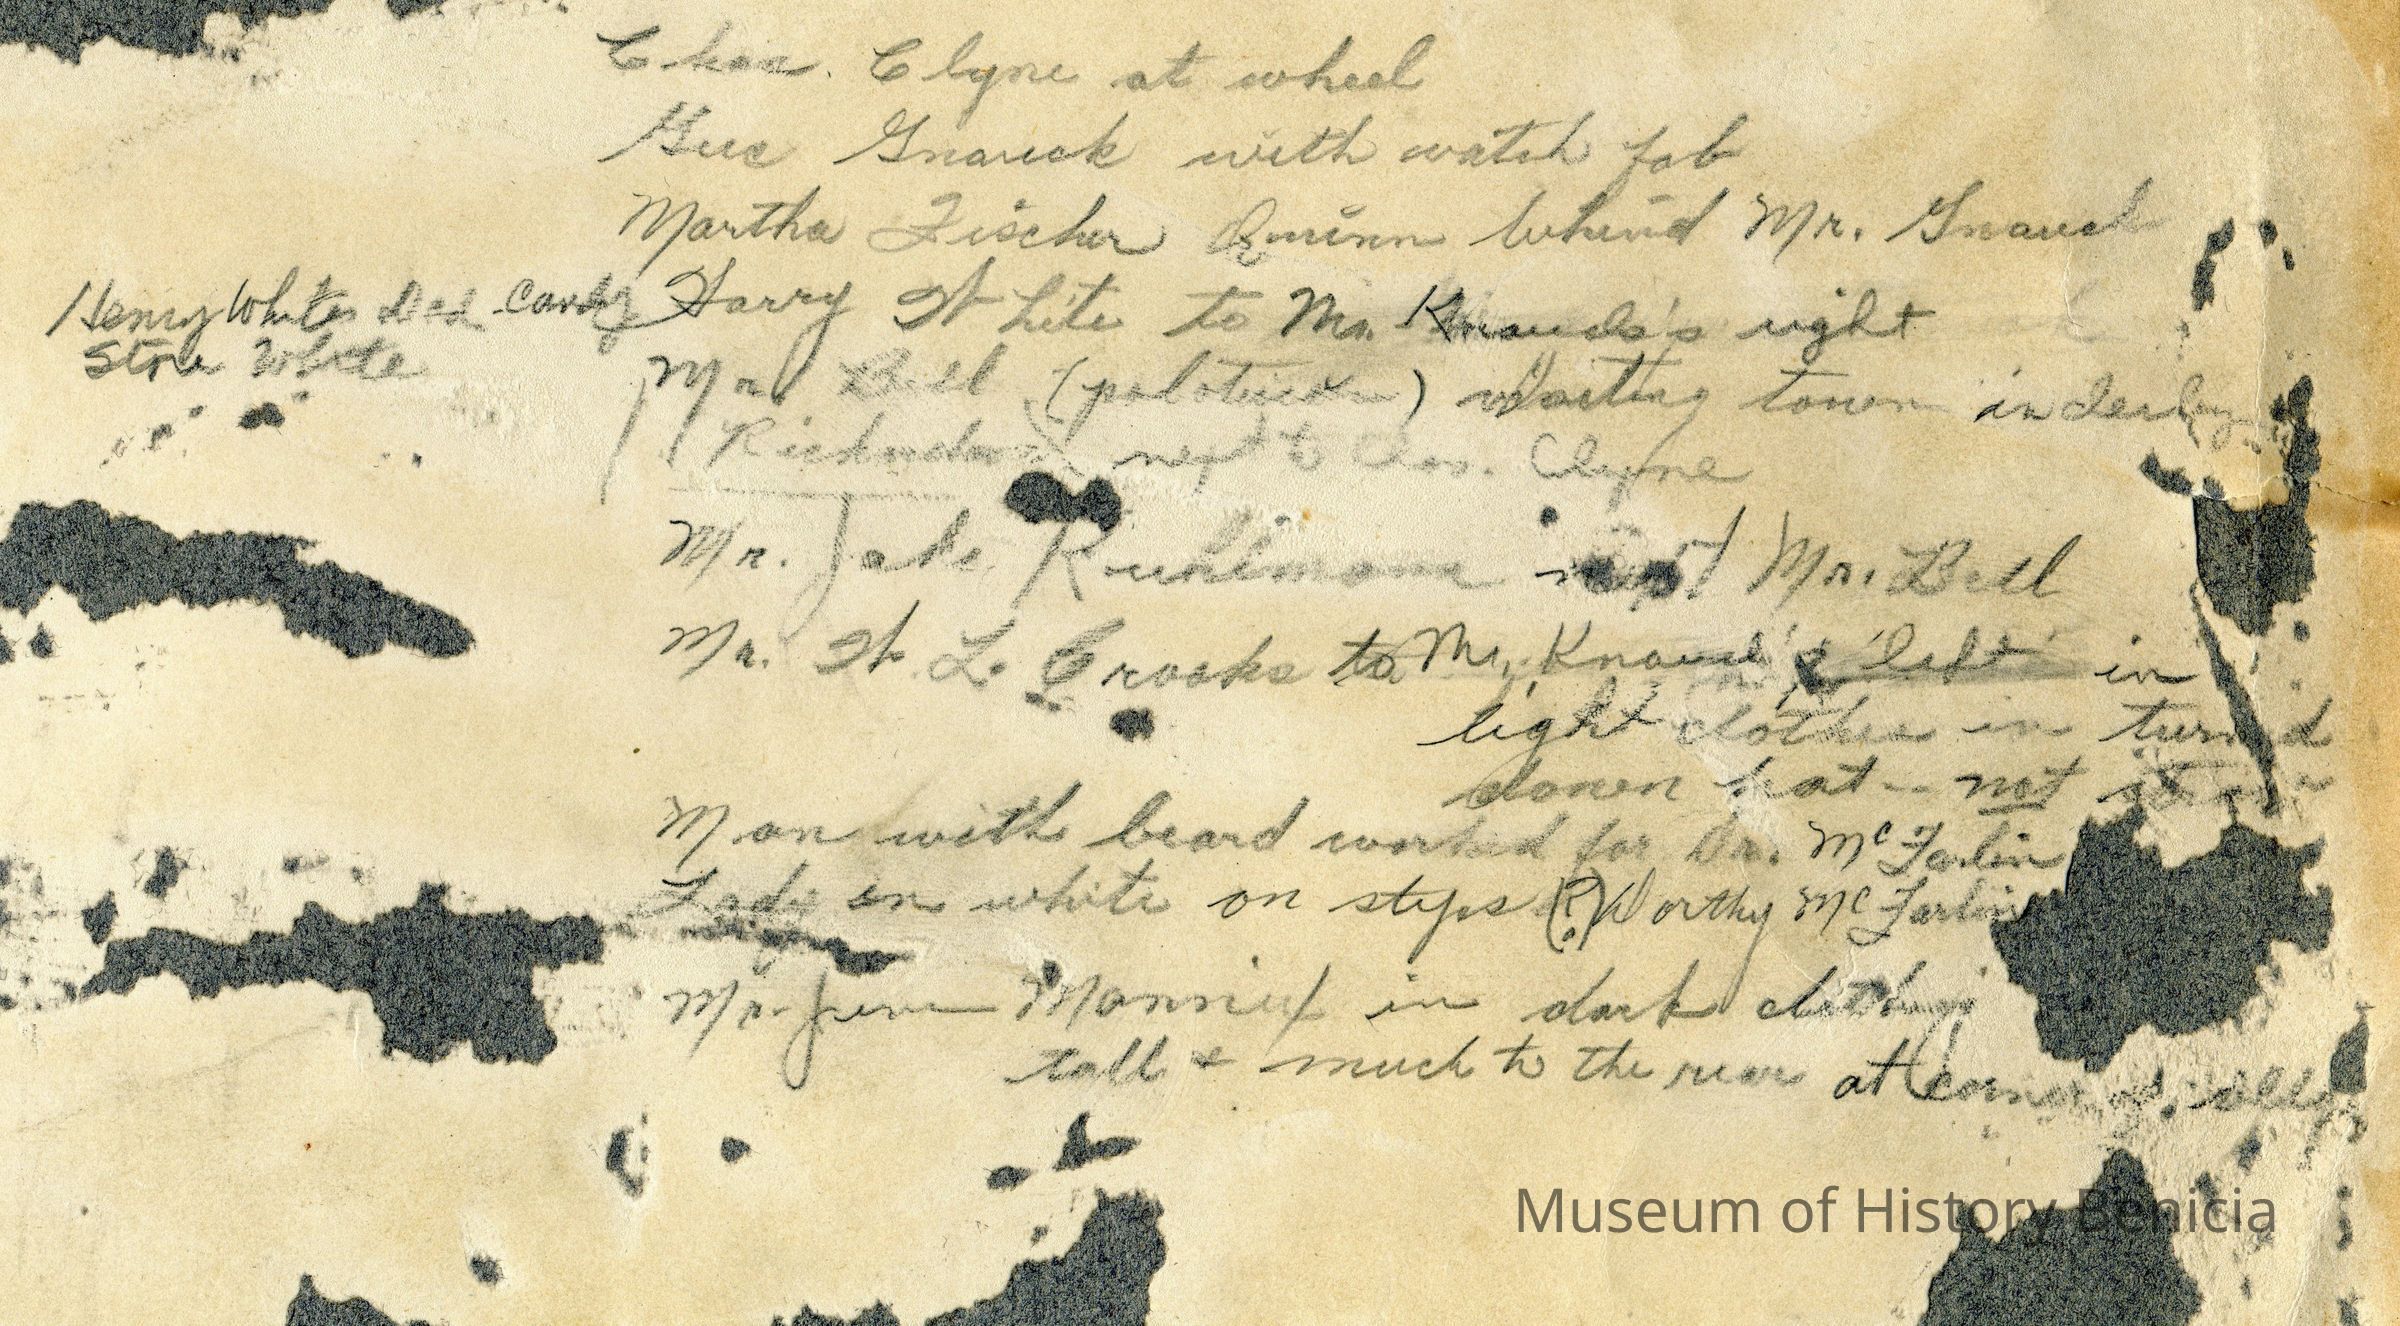 Chas. Clyne at wheel
Gus Gnauck with watch fob
Martha Fischer Quinn behind Mr. Gnauck
Henry White Dad Candy
Store White
Harry White to Mr. Knauck's right
Mr. Bell (politician) visiting town in derby
next to Chas. Clyne
Mr. Jake Kuhlmann next Mr. Bell
Mr. W. L. Crooks to Mr. Knauck's left in
light clothes in turned
down hat -- not straw
Man with beard worked for Dr. McFarlin
Lady in white on steps (?) Worthy McFarlin
Mr. Mannix in dark clothing
tall + much to the rear at corner of alley
Museum of History Benicia